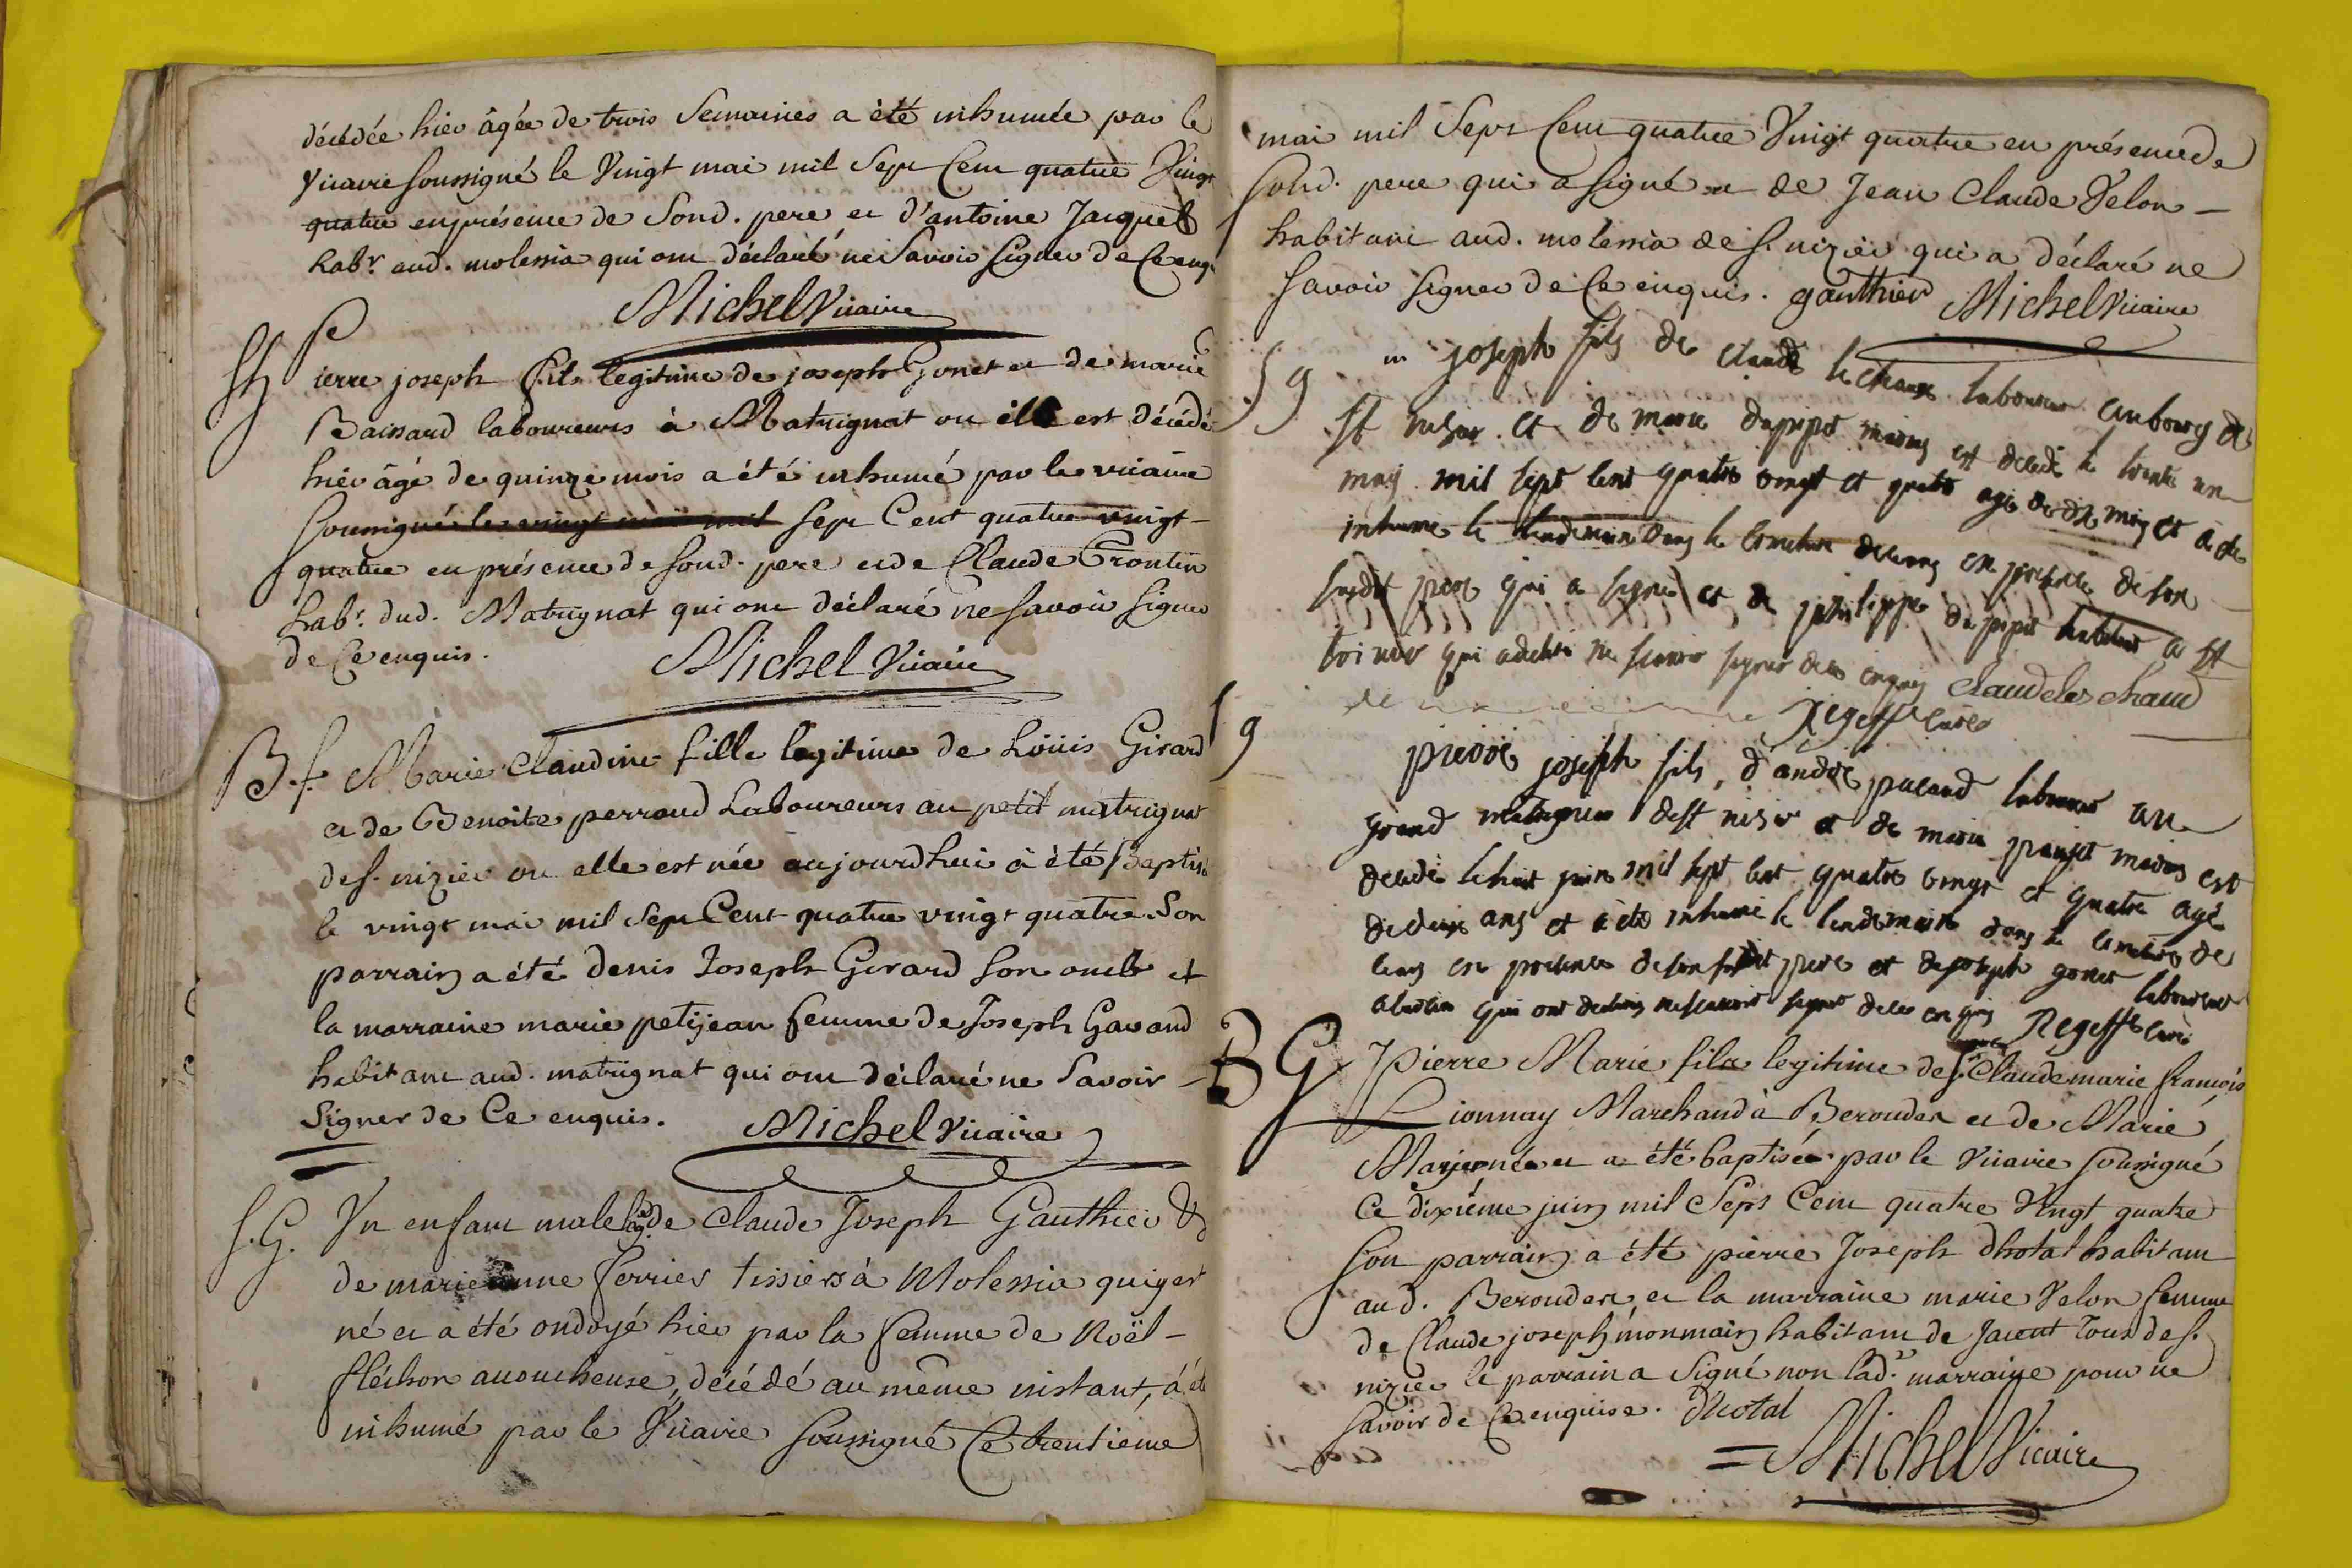 décédée hier âgée de trois Semaines a été inhumée par le
Vicaire soussigné le Vingt mai mil Sept Cent quatre Vingt
quatre en présence de Sond. pere et d'antoine Jacquet
habr. aud. molessia qui ont déclaré ne Savoir signer de Ce enq.
Michel Vicaire
Pierre joseph fils legitime de joseph Gonet et de marie
Baissard laboureurs à Matrignat ou il est décédé
hier âgé de quinze mois a été inhumé par le vicaire
soussigné le vingt mai mil Sept Cent quatre vingt -
quatre en présence de sond. pere et de Claude Trontin
habr. dud. Matrignat qui ont déclaré ne savoir signer
de Ce enquis.
Michel Vicaire
B.f. Marie Claudine fille legitime de Loüis Girard
et de Benoite perraud Laboureurs au petit matrignat
de s. nizier ou elle est née aujourdhui a été Baptisé
le vingt mai mil Sept Cent quatre vingt quatre. Son
parrain a été denis Joseph Girard son oncle et
la marraine marie petijean femme de Joseph Gavand
habitant aud. matrignat qui ont déclaré ne Savoir -
Signer de Ce enquis. Michel Vicaire
S.G. Un enfant male de Claude Joseph Gauthier &
de marie anne ferrier tissiers à Molessia qui y est
né et a été ondoyé hier par la femme de Noël -
fléchon accoucheuse, décédé au même instant, a été
inhumé par le Vicaire soussigné Ce trentieme
mai mil Sept Cent quatre Vingt quatre en présence de
sond. pere qui a signé et de Jean Claude Velon -
habitant aud. molessia de s. nizier qui a déclaré ne
savoir signer de Ce enquis. gauthier Michel Vicaire
Sg joseph fils de claude lechaux laboureur au bourg de
St nizier et de marie dupupet maries est decedé le trente un
may mil sept cent quatre vingt et quatre agé de dix mois et a été
inhumé le lendemain dans le cimetiere de ceans en presence de son
susdit pere qui a signé et de philippe du pupet habitant a St
trivier qui a declaré ne scavoir signer de ce enquis Claude les chaud
Regeffe curé
Sg pierre joseph fils d'andré pucand laboureur au
grand matrignat de St nizier et de marie maries est
decedé le huit juin mil sept cent quatre vingt et quatre agé
de deux ans et a été inhumé le lendemain dans le cimetiere de
ceans en presence de son susdit pere et de joseph gonet laboureur
qui ont declaré ne scavoir signer de ce enquis Regeffe curé
BG Pierre Marie fils legitime de s. Claude marie françois
Lionnay Marchand à Berouder et de Marie
né et a été baptisé par le Vicaire soussigné
Ce dixiéme juin mil Sept Cent quatre Vingt quatre
son parrain a été pierre Joseph dhotal habitant
aud. Berouder et la marraine marie Velon femme
de Claude joseph monmain habitant de Jacent Tous de s.
nizier le parrain a signé non lad. marraine pour ne
savoir de Ce enquise. D'hotal
Michel Vicaire